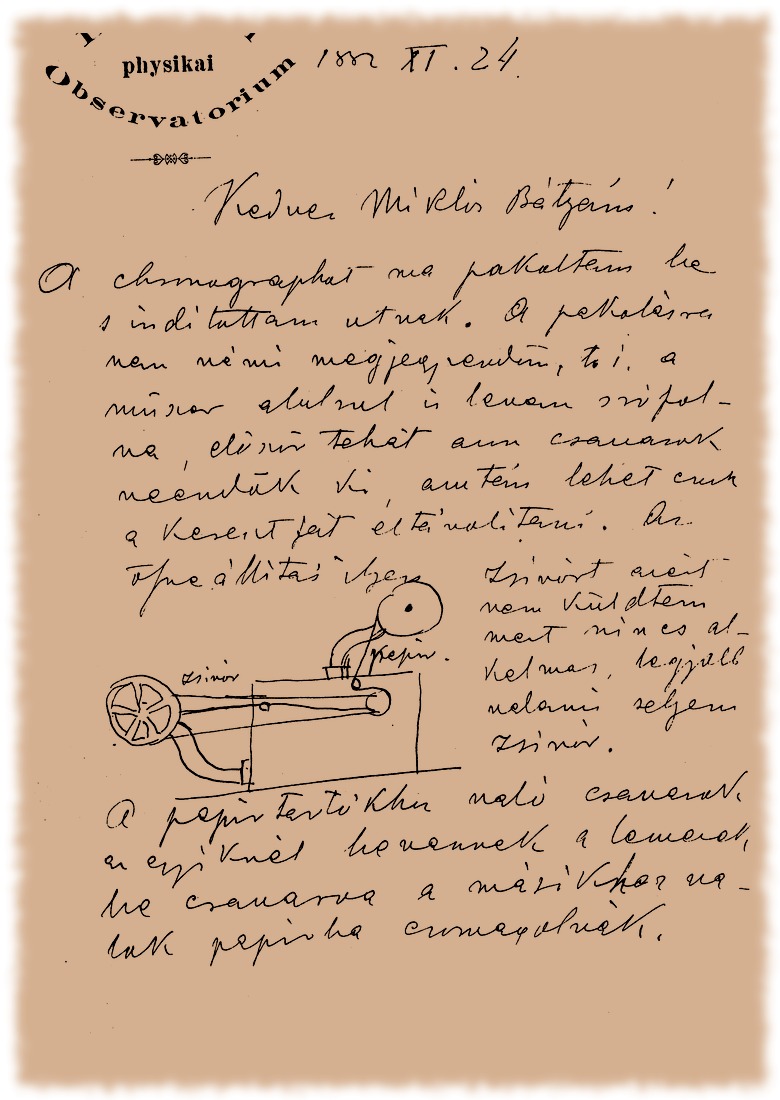 physikai
Observatorium
1882 XI. 24.
Kedves Miklós Bátyám!
A chronographot ma pakoltam be
s indítottam utnak. A pakolásra
van némi megjegyzendőm, t. i. a
műszer alulról is le van szrófol-
va, először tehát azon csavarok
veendők ki, azután lehet csak
a keresztfát eltávolítani. Az
összeállítás ilyen
Zsinórt azért
nem küldtem
mert nincs al-
kalmas, legjobb
valami selyem
zsinór.
papír.
zsinór
A papírtartókhoz való csavarok
az egyiknél be vannak a lemezek
be csavarva a másikhoz va-
lók papírba csomagolvák.